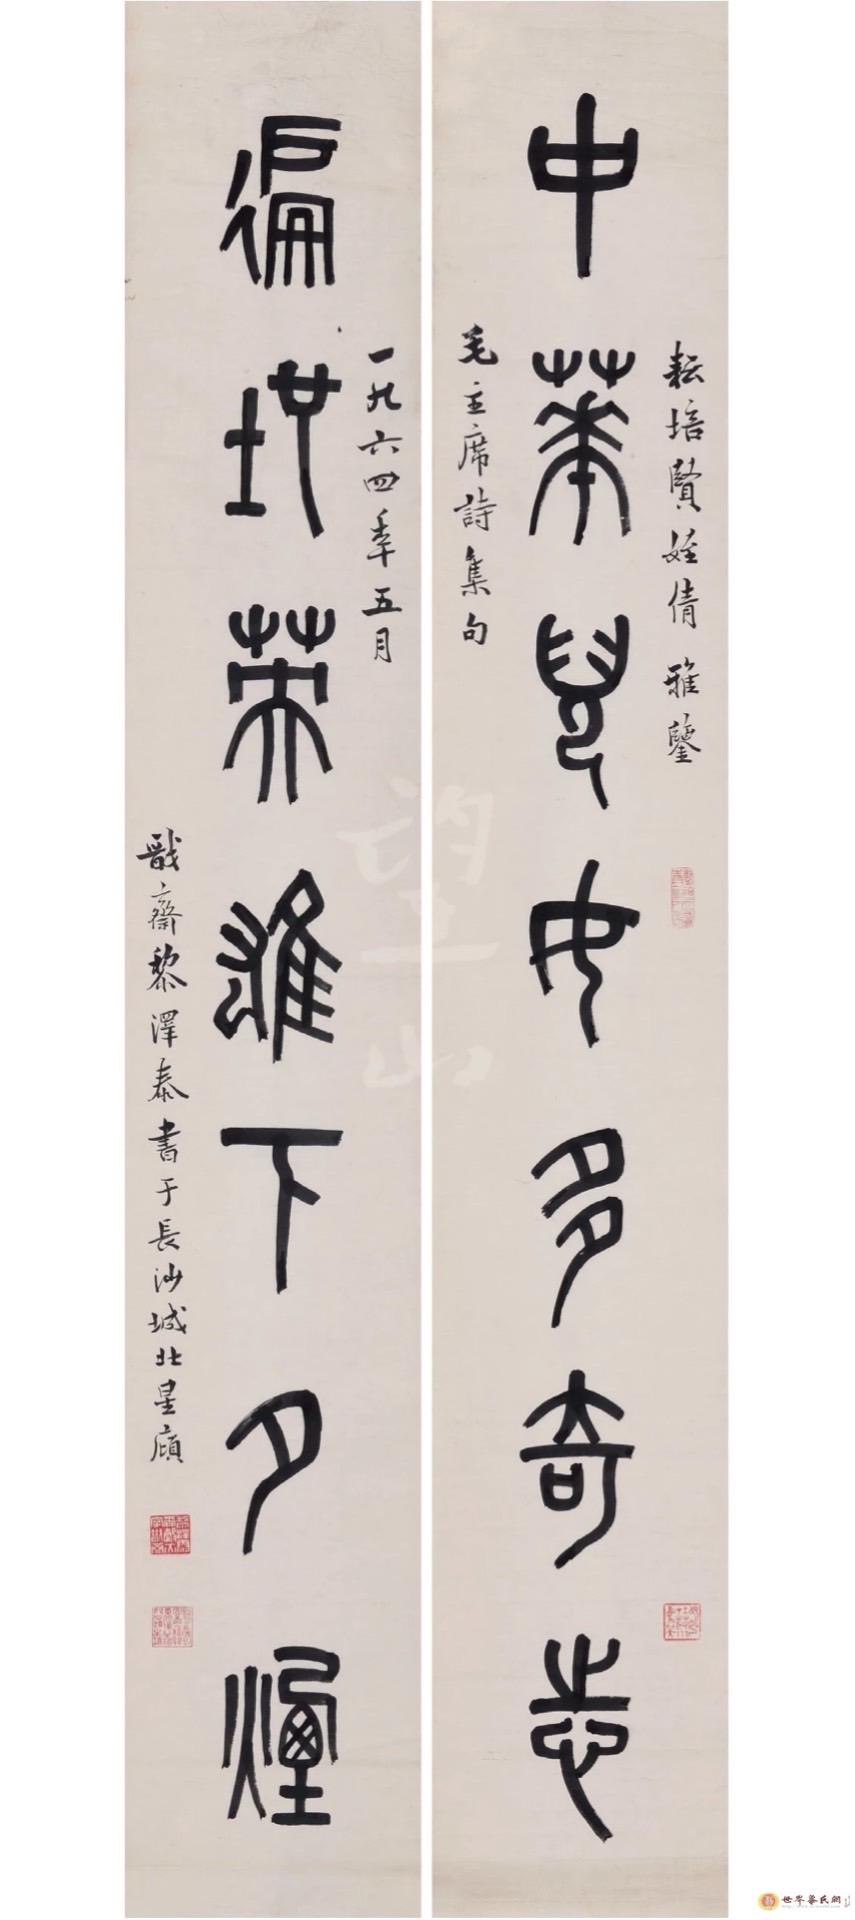 耘培賢姪倩雅鑒
中華兒女多奇志
毛主席詩集句
一九六四年五月
徧地英雄下夕煙
戩齋黎澤泰書于長沙城北星廎
望山